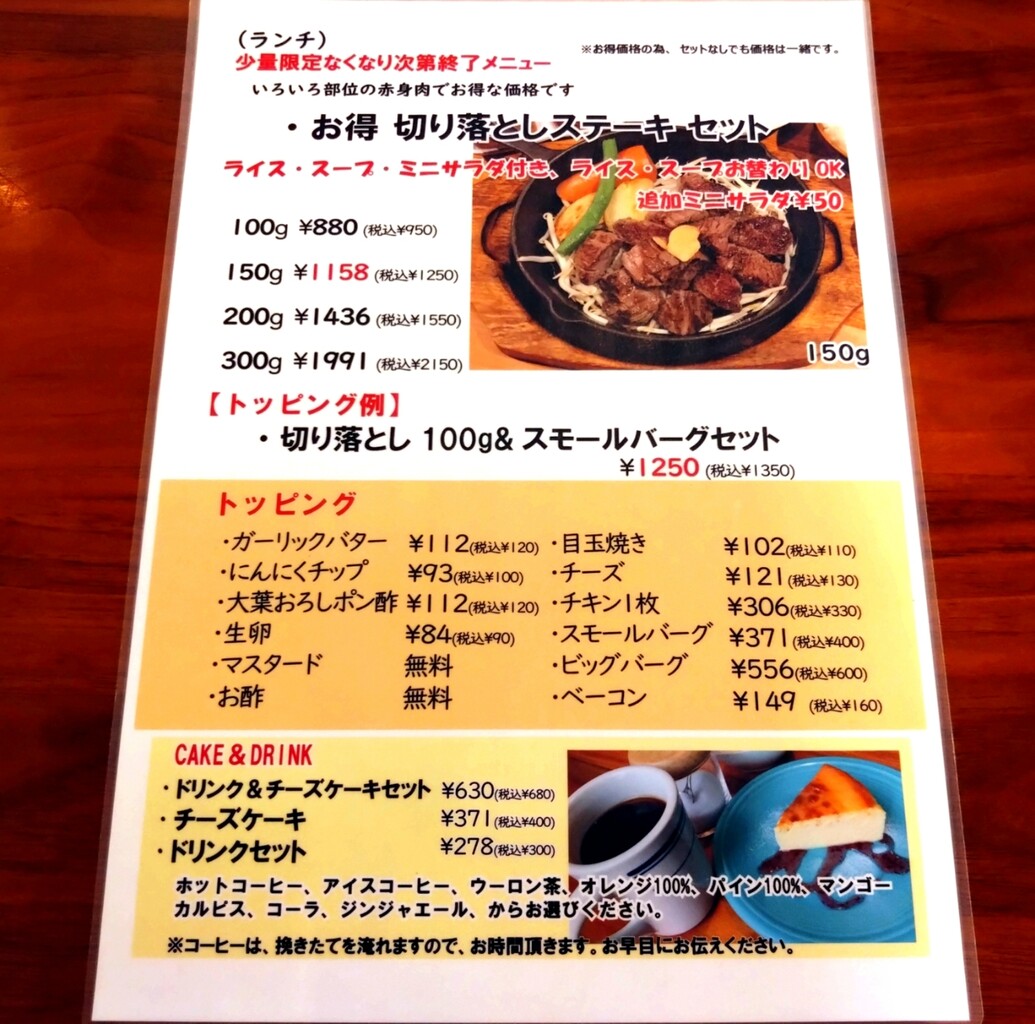 （ランチ）
※お得価格の為、セットなしでも価格は一緒です。
少量限定なくなり次第終了メニュー
いろいろ部位の赤身肉でお得な価格です
・お得 切り落としステーキ セット
ライス・スープ・ミニサラダ付き、ライス・スープお替わりOK
追加ミニサラダ¥50
100g ¥880 (税込¥950)
150g ¥1158 (税込¥1250)
200g ¥1436 (税込¥1550)
300g ¥1991 (税込¥2150)
150g
【トッピング例】
・切り落とし 100g& スモールバーグセット
¥1250 (税込¥1350)
トッピング
・ガーリックバター ¥112(税込¥120)
・にんにくチップ ¥93(税込¥100)
・大葉おろしポン酢 ¥112(税込¥120)
・生卵 ¥84(税込¥90)
・マスタード 無料
・お酢 無料
・目玉焼き ¥102(税込¥110)
・チーズ ¥121(税込¥130)
・チキン1枚 ¥306(税込¥330)
・スモールバーグ ¥371(税込¥400)
・ビッグバーグ ¥556(税込¥600)
・ベーコン ¥149 (税込¥160)
CAKE & DRINK
・ドリンク＆チーズケーキセット ¥630(税込¥680)
・チーズケーキ ¥371(税込¥400)
・ドリンクセット ¥278(税込¥300)
ホットコーヒー、アイスコーヒー、ウーロン茶、オレンジ100%、パイン100%、マンゴー
カルピス、コーラ、ジンジャエール、からお選びください。
※コーヒーは、挽きたてを淹れますので、お時間頂きます。お早目にお伝えください。